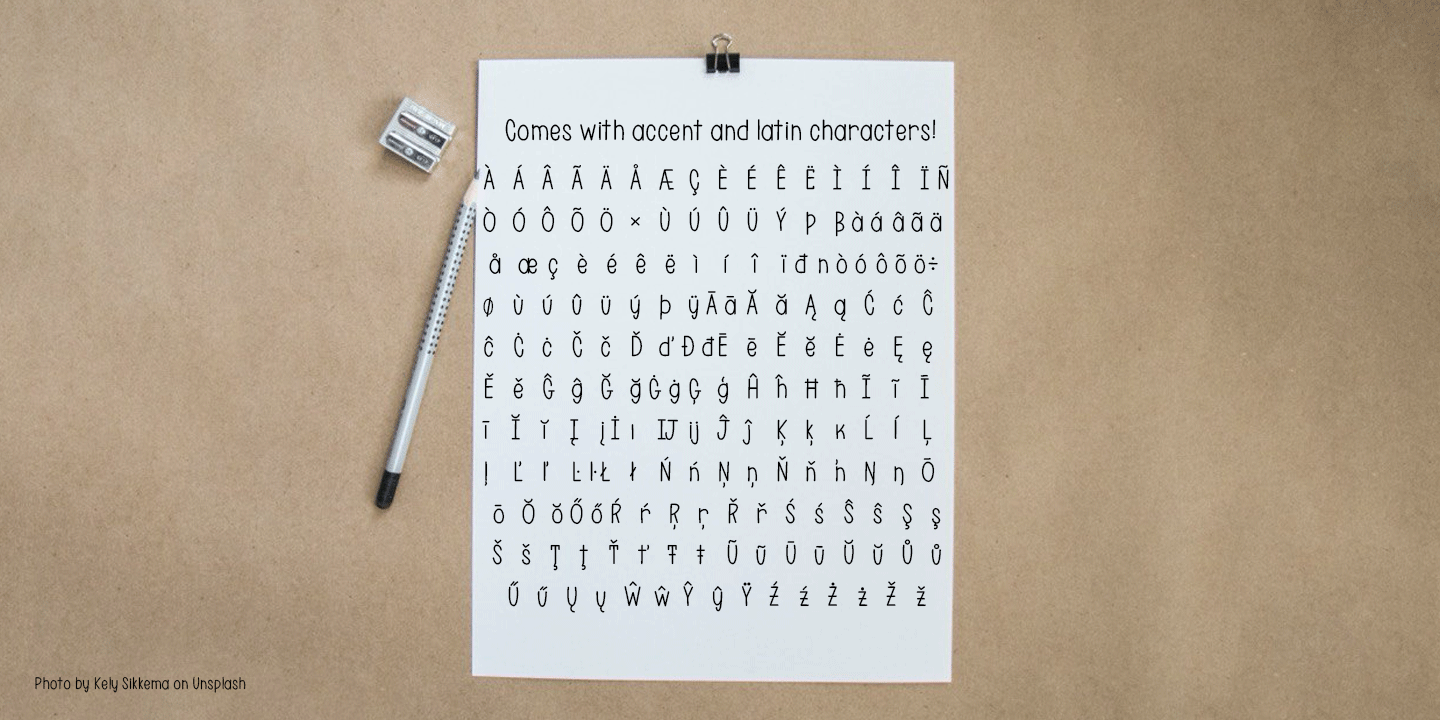 Comes with accent and latin characters!
À Á Â Ã Ä Å Æ Ç È É Ê Ë Ì Í Î Ï Ñ
Ò Ó Ô Õ Ö × Ù Ú Û Ü Ý Þ ß à á â ã ä
å æ ç è é ê ë ì í î ï đ n ò ó ô õ ö ÷
ø ù ú û ü ý þ ÿ Ā ā Ă ă Ą ą Ć ć Ĉ
ĉ Ċ ċ Č č Ď ď Đ đ Ē ē Ĕ ĕ Ė ė Ę ę
Ě ě Ĝ ĝ Ğ ğ Ġ ġ Ģ ģ Ĥ ĥ Ħ ħ Ĩ ĩ Ī
ī Ĭ ĭ Į į İ ı Ĳ ĳ Ĵ ĵ Ķ ķ ĸ Ĺ ĺ Ļ
ļ Ľ ľ Ŀ ŀ Ł ł Ń ń Ņ ņ Ň ň ŉ Ŋ ŋ Ō
ō Ŏ ŏ Ő ő Ŕ ŕ Ŗ ŗ Ř ř Ś ś Ŝ ŝ Ş ş
Š š Ţ ţ Ť ť Ŧ ŧ Ũ ũ Ū ū Ŭ ŭ Ů ů
Ű ű Ų ų Ŵ ŵ Ŷ ŷ Ÿ Ź ź Ż ż Ž ž
Photo by Kely Sikkema on Unsplash